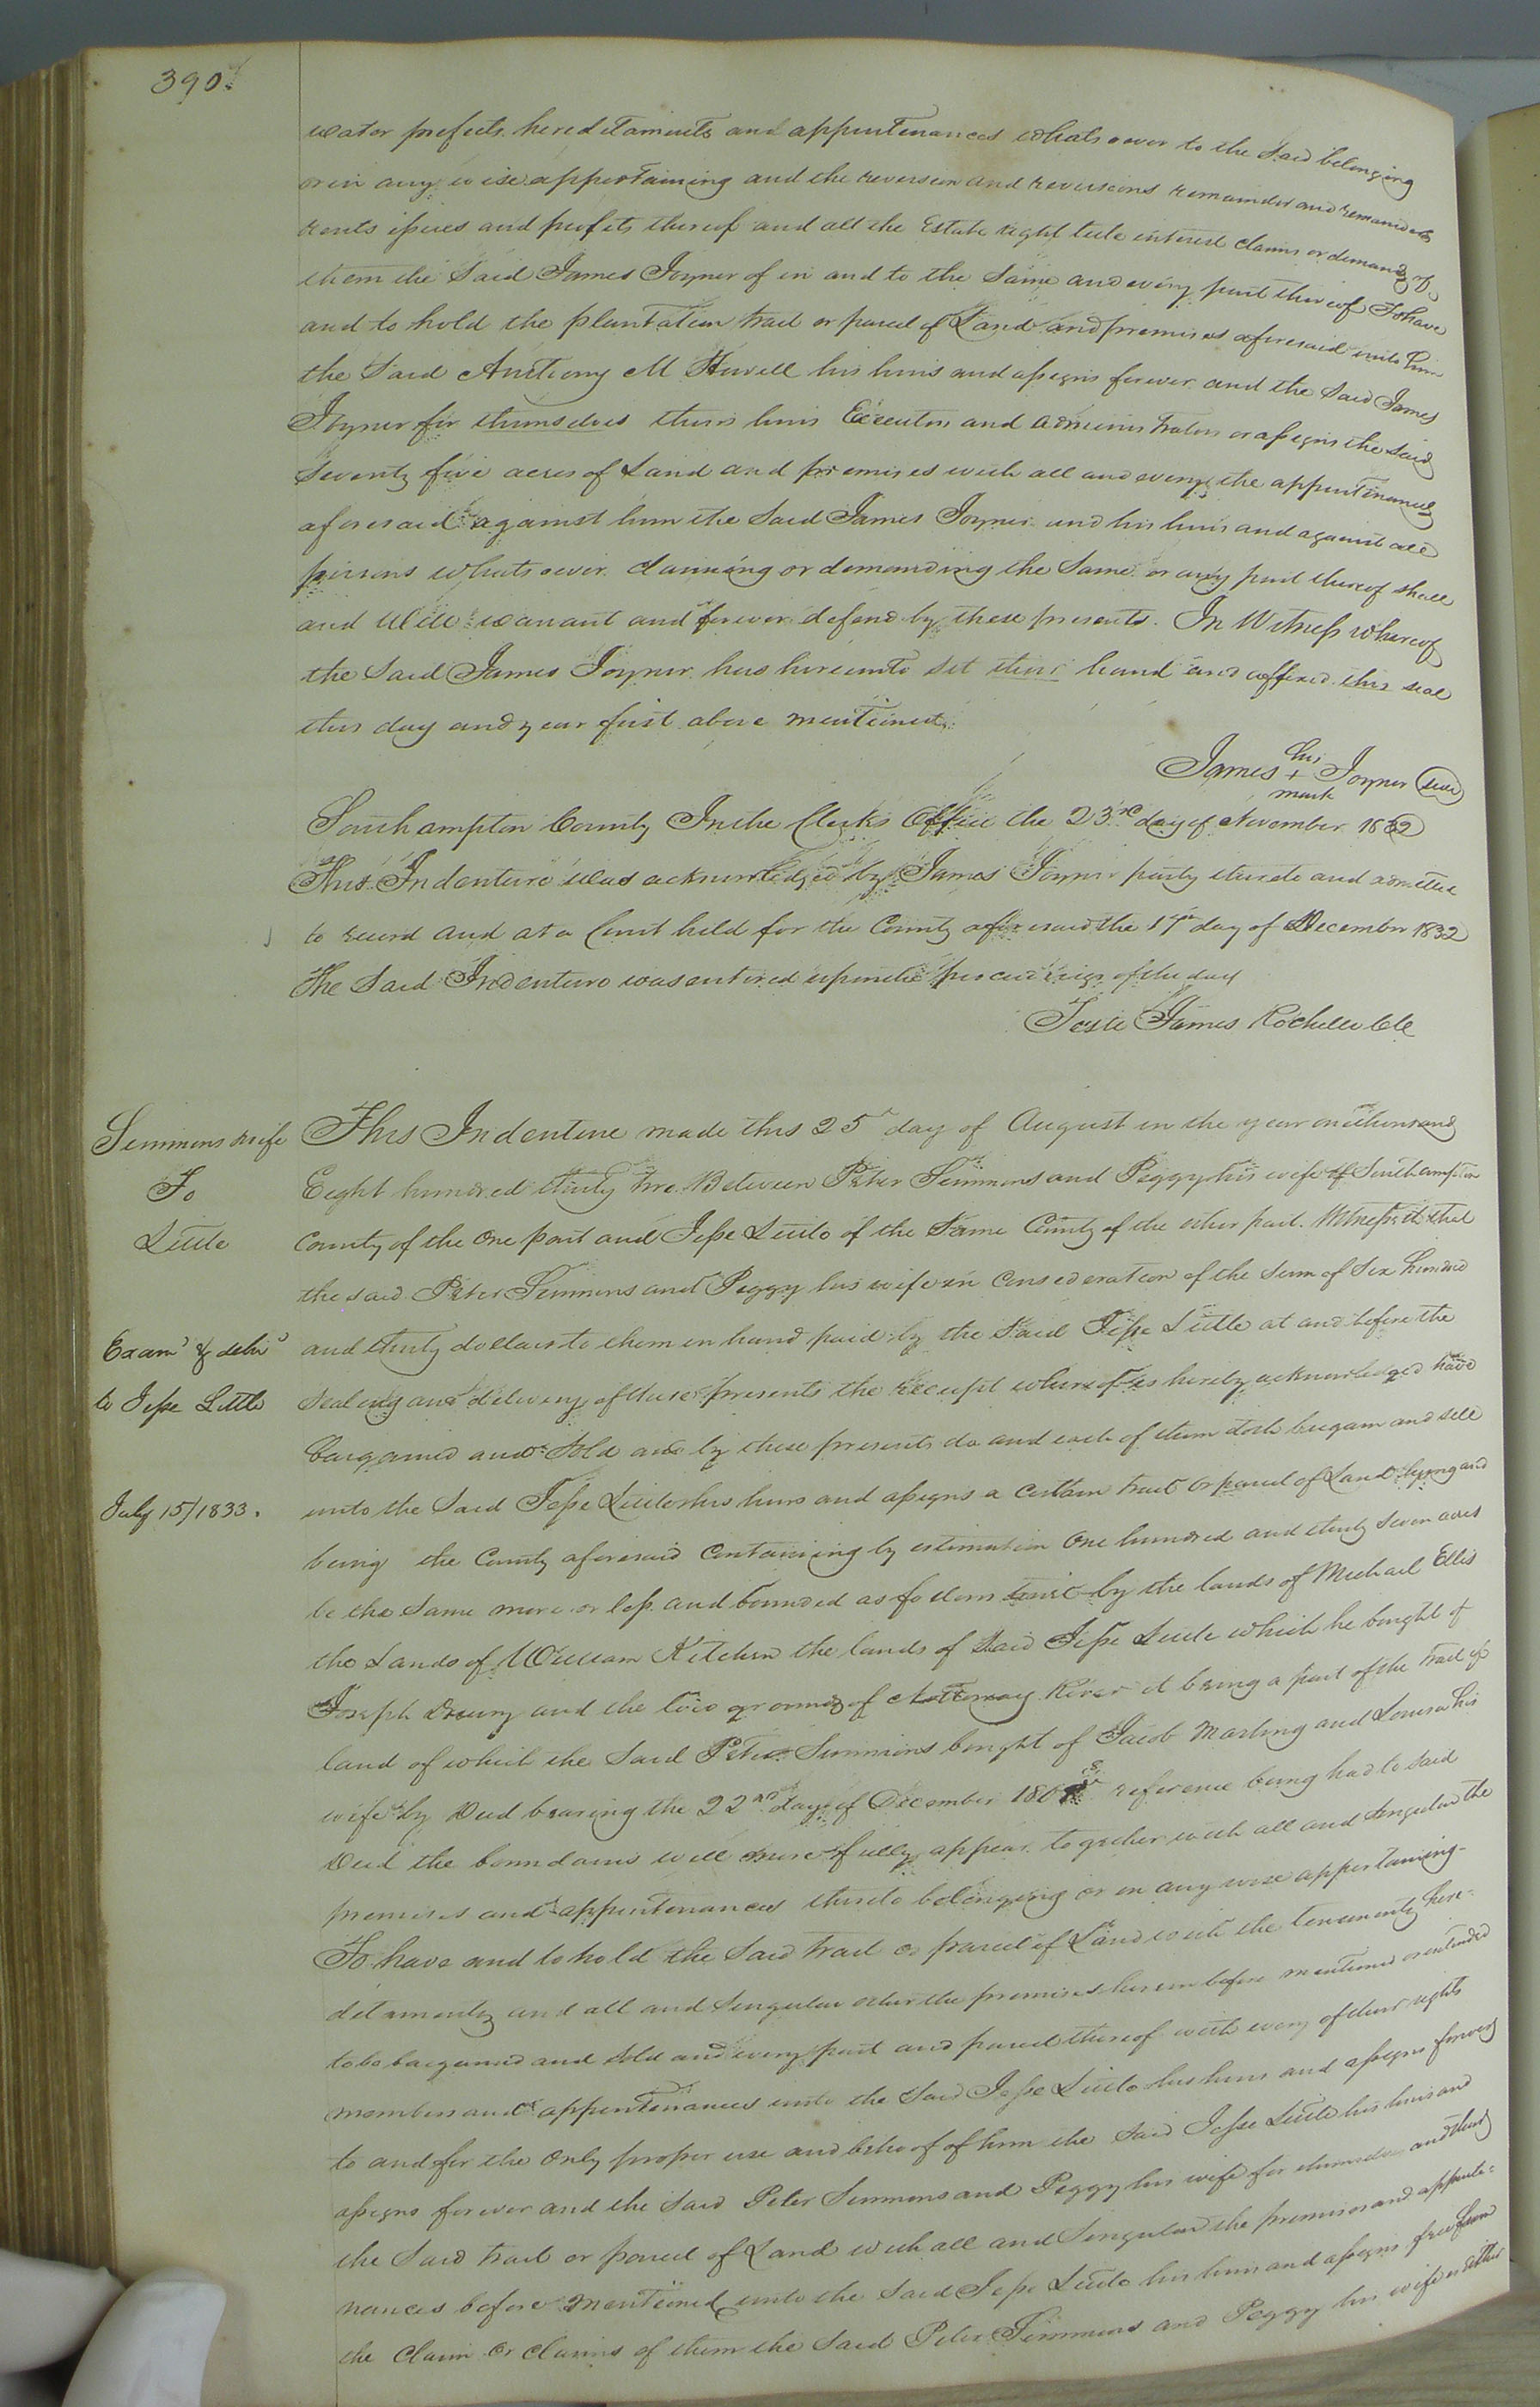 390.
water profits hereditaments and appurtenances whatsoever to the Said belonging
or in any wise appertaining and the reversion and reversions remainder and remainders
rents issues and profits thereof and all the Estate right title interest claim or demand of
them the Said James Joyner of in and to the Same and every part thereof To have
and to hold the plantation tract or parcel of Land and premises aforesaid unto him
the Said Anthony M Howell his heirs and assigns forever and the Said James
Joyner for themselves their heirs Executors and administrators or assigns the Said
Seventy five acres of Land and premises with all and every the appurtenances
aforesaid against him the Said James Joyner and his heirs and against all
persons whatsoever claiming or demanding the Same or any part thereof shall
and Will warrant and forever defend by these presents. In Witness whereof
the Said James Joyner has hereunto set their hand and affixed this seal
this day and year first above mentioned.
his
James + Joyner (seal)
mark
Southampton County In the Clerks Office the 23rd day of November 1832
This Indenture was acknowledged by James Joyner party thereto and admitted
to record and at a Court held for the County aforesaid the 17th day of December 1832
The Said Indenture was entered upon the proceedings of the day
Teste James Rochelle Clk
Simmons & wife
To
Little
Examd & delivd
to Jesse Little
July 15/1833.
This Indenture made this 25th day of August in the year one thousand
Eight hundred thirty two Between Peter Simmons and Peggy his wife of Southampton
County of the One part and Jesse Little of the Same County of the other part. Witnesseth that
the said Peter Simmons and Peggy his wife in Consideration of the Sum of Six hundred
and thirty dollars to them in hand paid by the Said Jesse Little at and before the
Sealing and delivery of these presents the receipt whereof is hereby acknowledged have
bargained and Sold and by these presents do and each of them doth bargain and sell
unto the Said Jesse Little his heirs and assigns a certain tract or parcel of Land lying and
being the County aforesaid Containing by estimation One hundred and thirty Seven acres
be the Same more or less and bounded as follows to wit by the lands of Michael Ellis
the Lands of William Kitchen the lands of Said Jesse Little which he bought of
Joseph Drury and the low grounds of Nottoway River it being a part of the tract of
land of which the Said Peter Simmons bought of Jacob Marling and Louisa his
wife by Deed bearing the 22nd day of December 180 reference being had to Said
Deed the boundaries will more fully appear together with all and Singular the
premises and appurtenances thereto belonging or in any wise appertaining-
To have and to hold the Said tract or parcel of Land with the tenements here-
ditaments and all and Singular other the premises herein before mentioned or intended
to be bargained and Sold and every part and parcel thereof with every of their rights
members and appurtenances unto the Said Jesse Little his heirs and assigns forever
to and for the only proper use and behoof of him the Said Jesse Little his heirs and
assigns forever and the Said Peter Simmons and Peggy his wife for themselves and their
the Said tract or parcel of Land with all and Singular the premises and appurte-
nances before mentioned unto the Said Jesse Little his heirs and assigns free from
the Claim or Claims of them the Said Peter Simmons and Peggy his wife or either